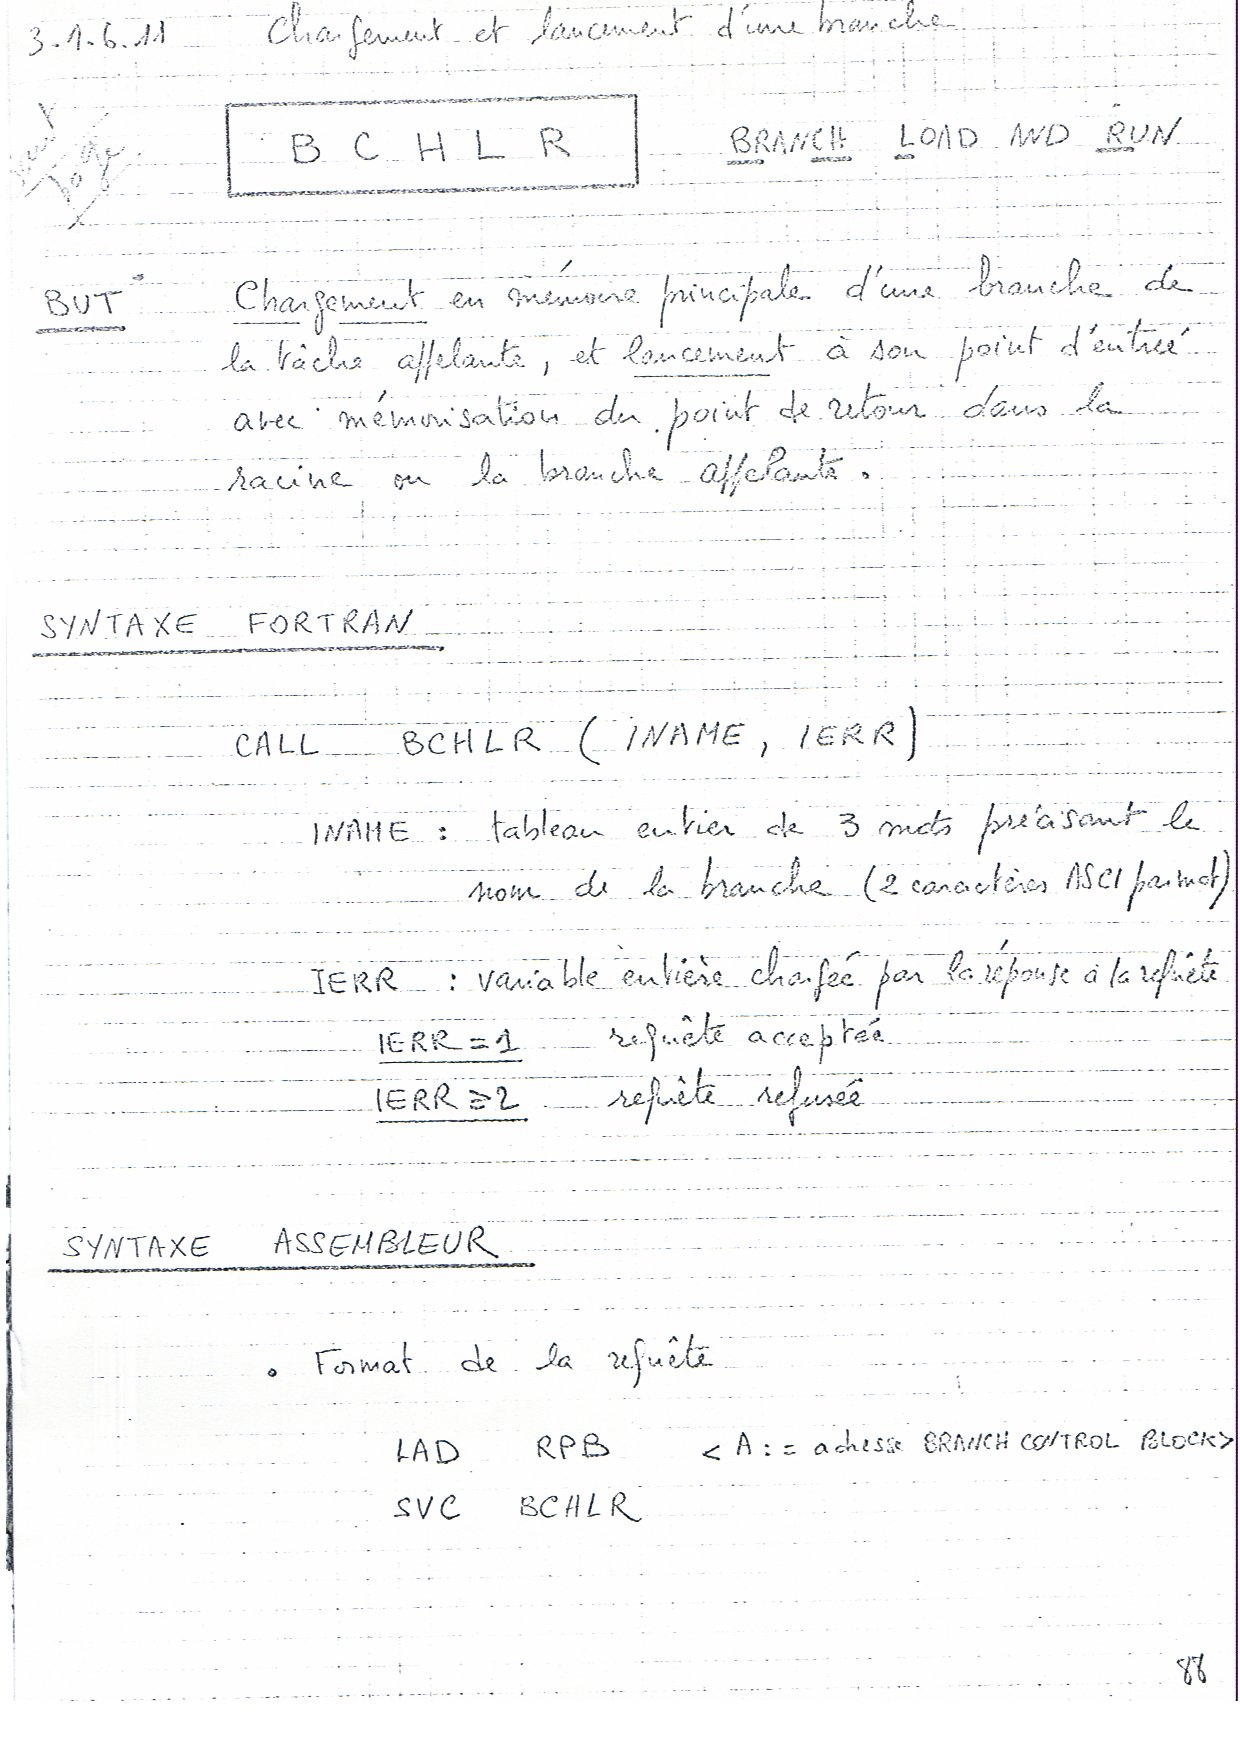 3.1.6.11 Chargement et lancement d'une branche
saut
page
B C H L R BRANCH LOAD AND RUN
BUT Chargement en mémoire principale d'une branche de
la tâche appelante, et lancement à son point d'entrée
avec mémorisation du point de retour dans la
racine ou la branche appelante.
SYNTAXE FORTRAN
CALL BCHLR (INAME, IERR)
INAME : tableau entier de 3 mots précisant le
nom de la branche (2 caractères ASCI par mot)
IERR : variable entière chargée par la réponse à la requête
IERR = 1 requête acceptée
IERR ≥ 2 requête refusée
SYNTAXE ASSEMBLEUR
. Format de la requête
LAD RPB < A := adresse BRANCH CONTROL BLOCK>
SVC BCHLR
88